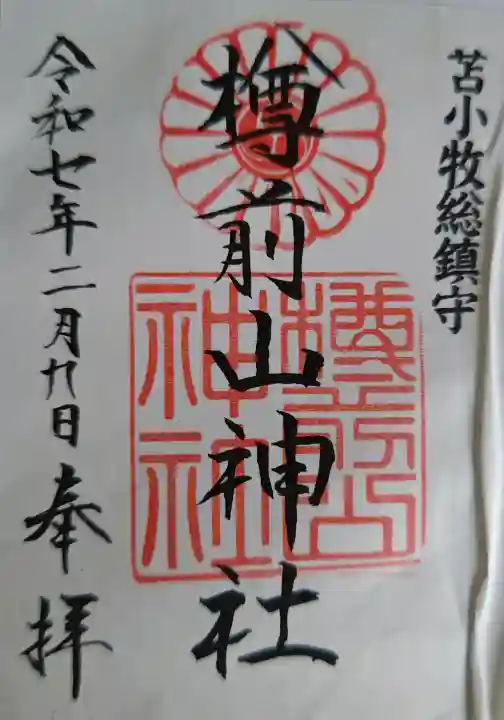 苫小牧総鎮守
樽前山神社
樽前山
神社
令和七年二月九日 奉拝